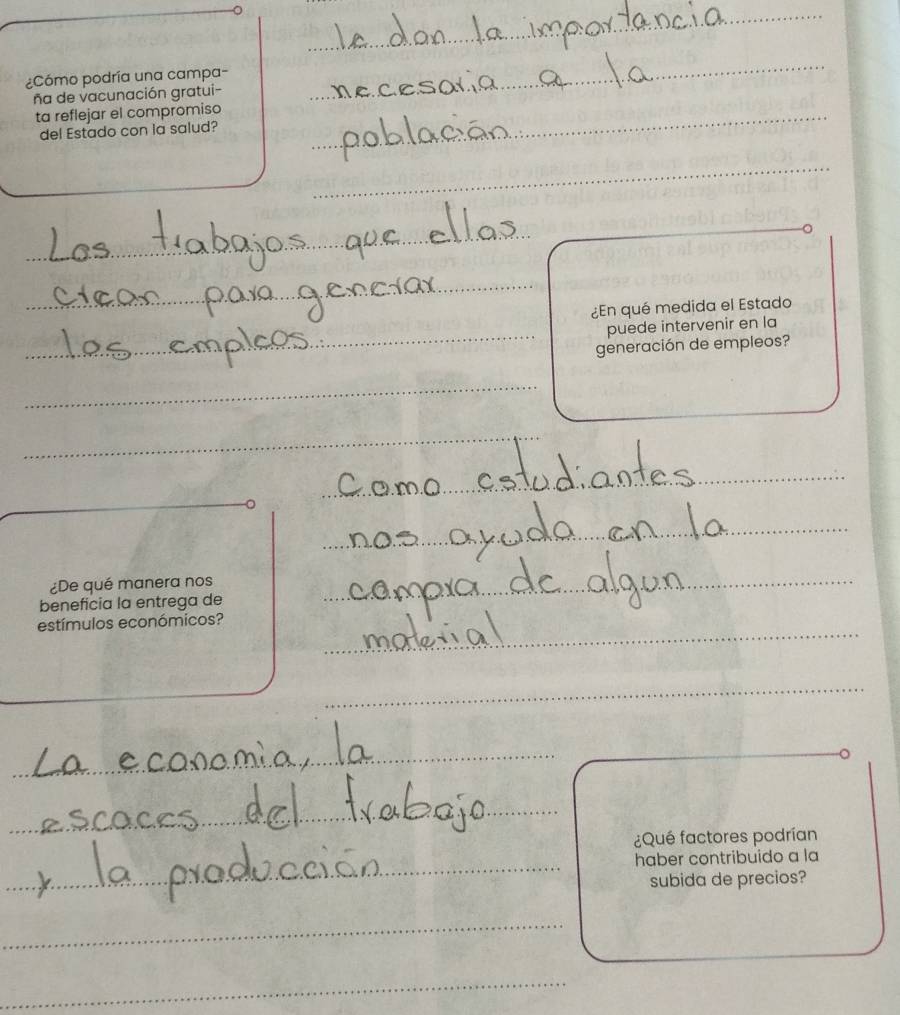 ¿Cómo podría una campa-
ña de vacunación gratui-
ta reflejar el compromiso
del Estado con la salud?
le dan la importancia
necesaria a la
poblacián
Los trabajos que ellos
crean para generar
los empleos
¿En qué medida el Estado
puede intervenir en la
generación de empleos?
¿De qué manera nos
beneficia la entrega de
estímulos económicos?
Como estudiantes
nos ayuda en la
compra de algun
material
La economia, la
escaces del trabajo
y la producción
¿Qué factores podrían
haber contribuido a la
subida de precios?